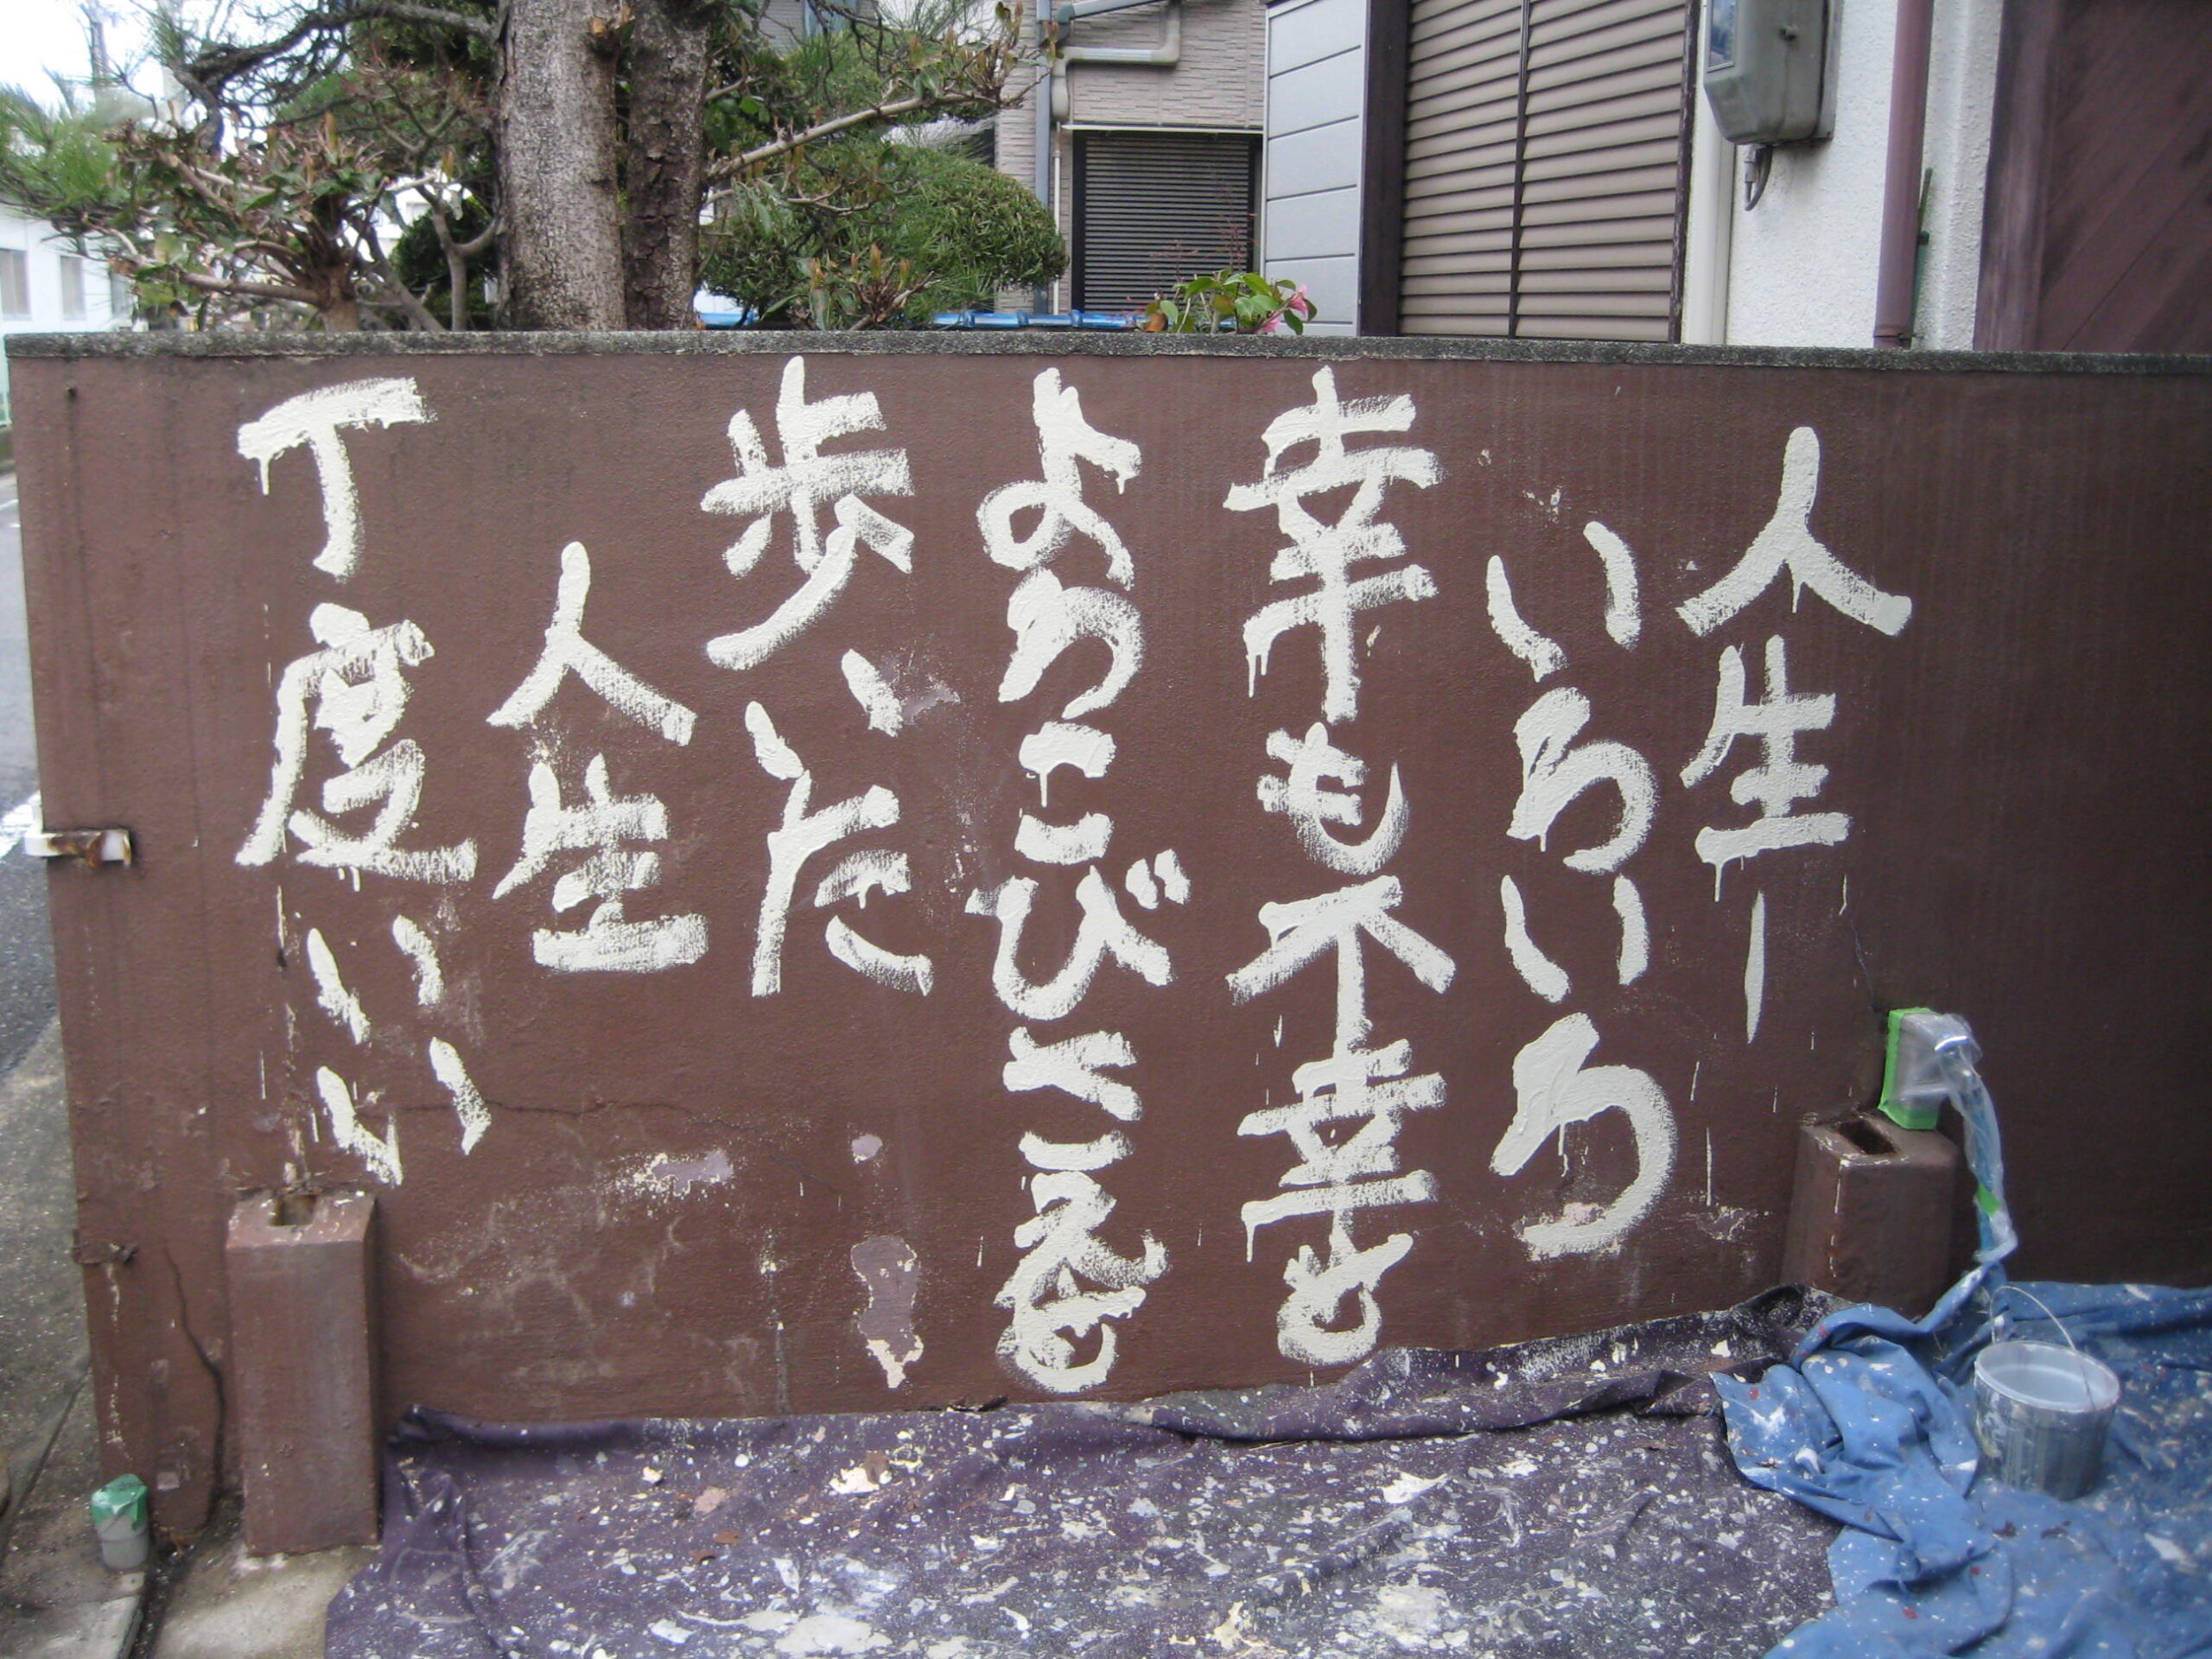 人生ー
いろいろ
幸も不幸も
よろこびとえも
歩いた
人生
丁度いい